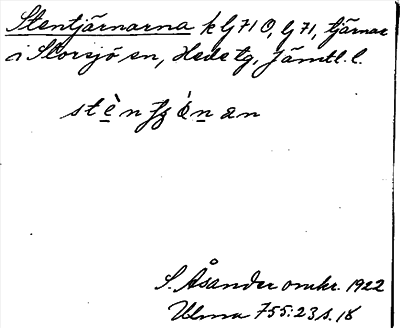 Stentjärnarna k lj 71 O, lj 71, tjärnar
i Storsjö sn, Hede tg, Jämtl. l.
stèntjànan
S. Åsander omkr. 1922
Ulma 755:23 s. 18